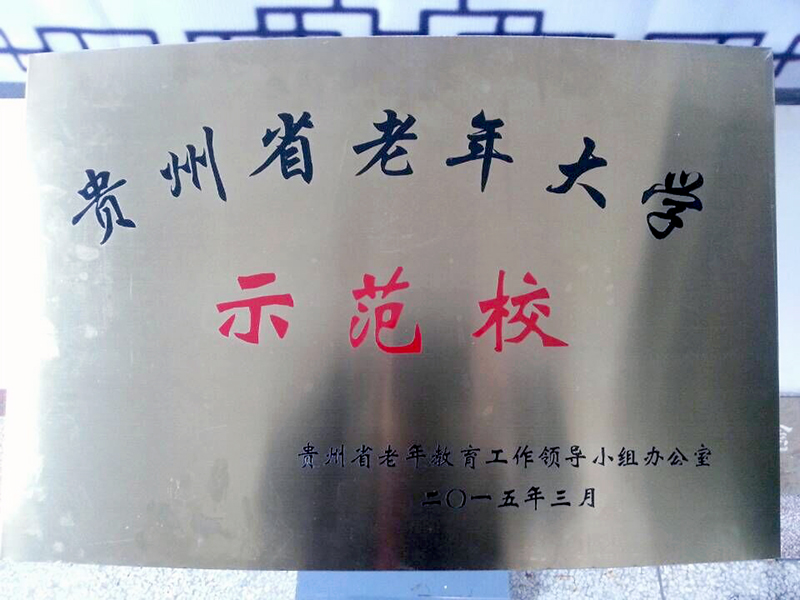 贵州省老年大学
示范校
贵州省老年教育工作领导小组办公室
二〇一五年三月